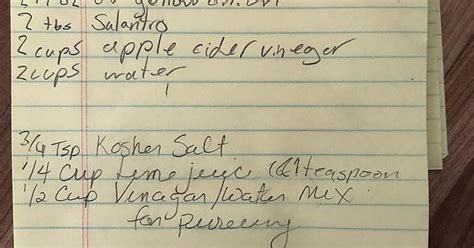 2 tbs Salantro
2 cups apple cider vineger
2 cups water
3/4 Tsp Kosher Salt
1/4 Cup Lime juice 1 teaspoon
1/2 Cup Vinagar/Water Mix
for pureeing